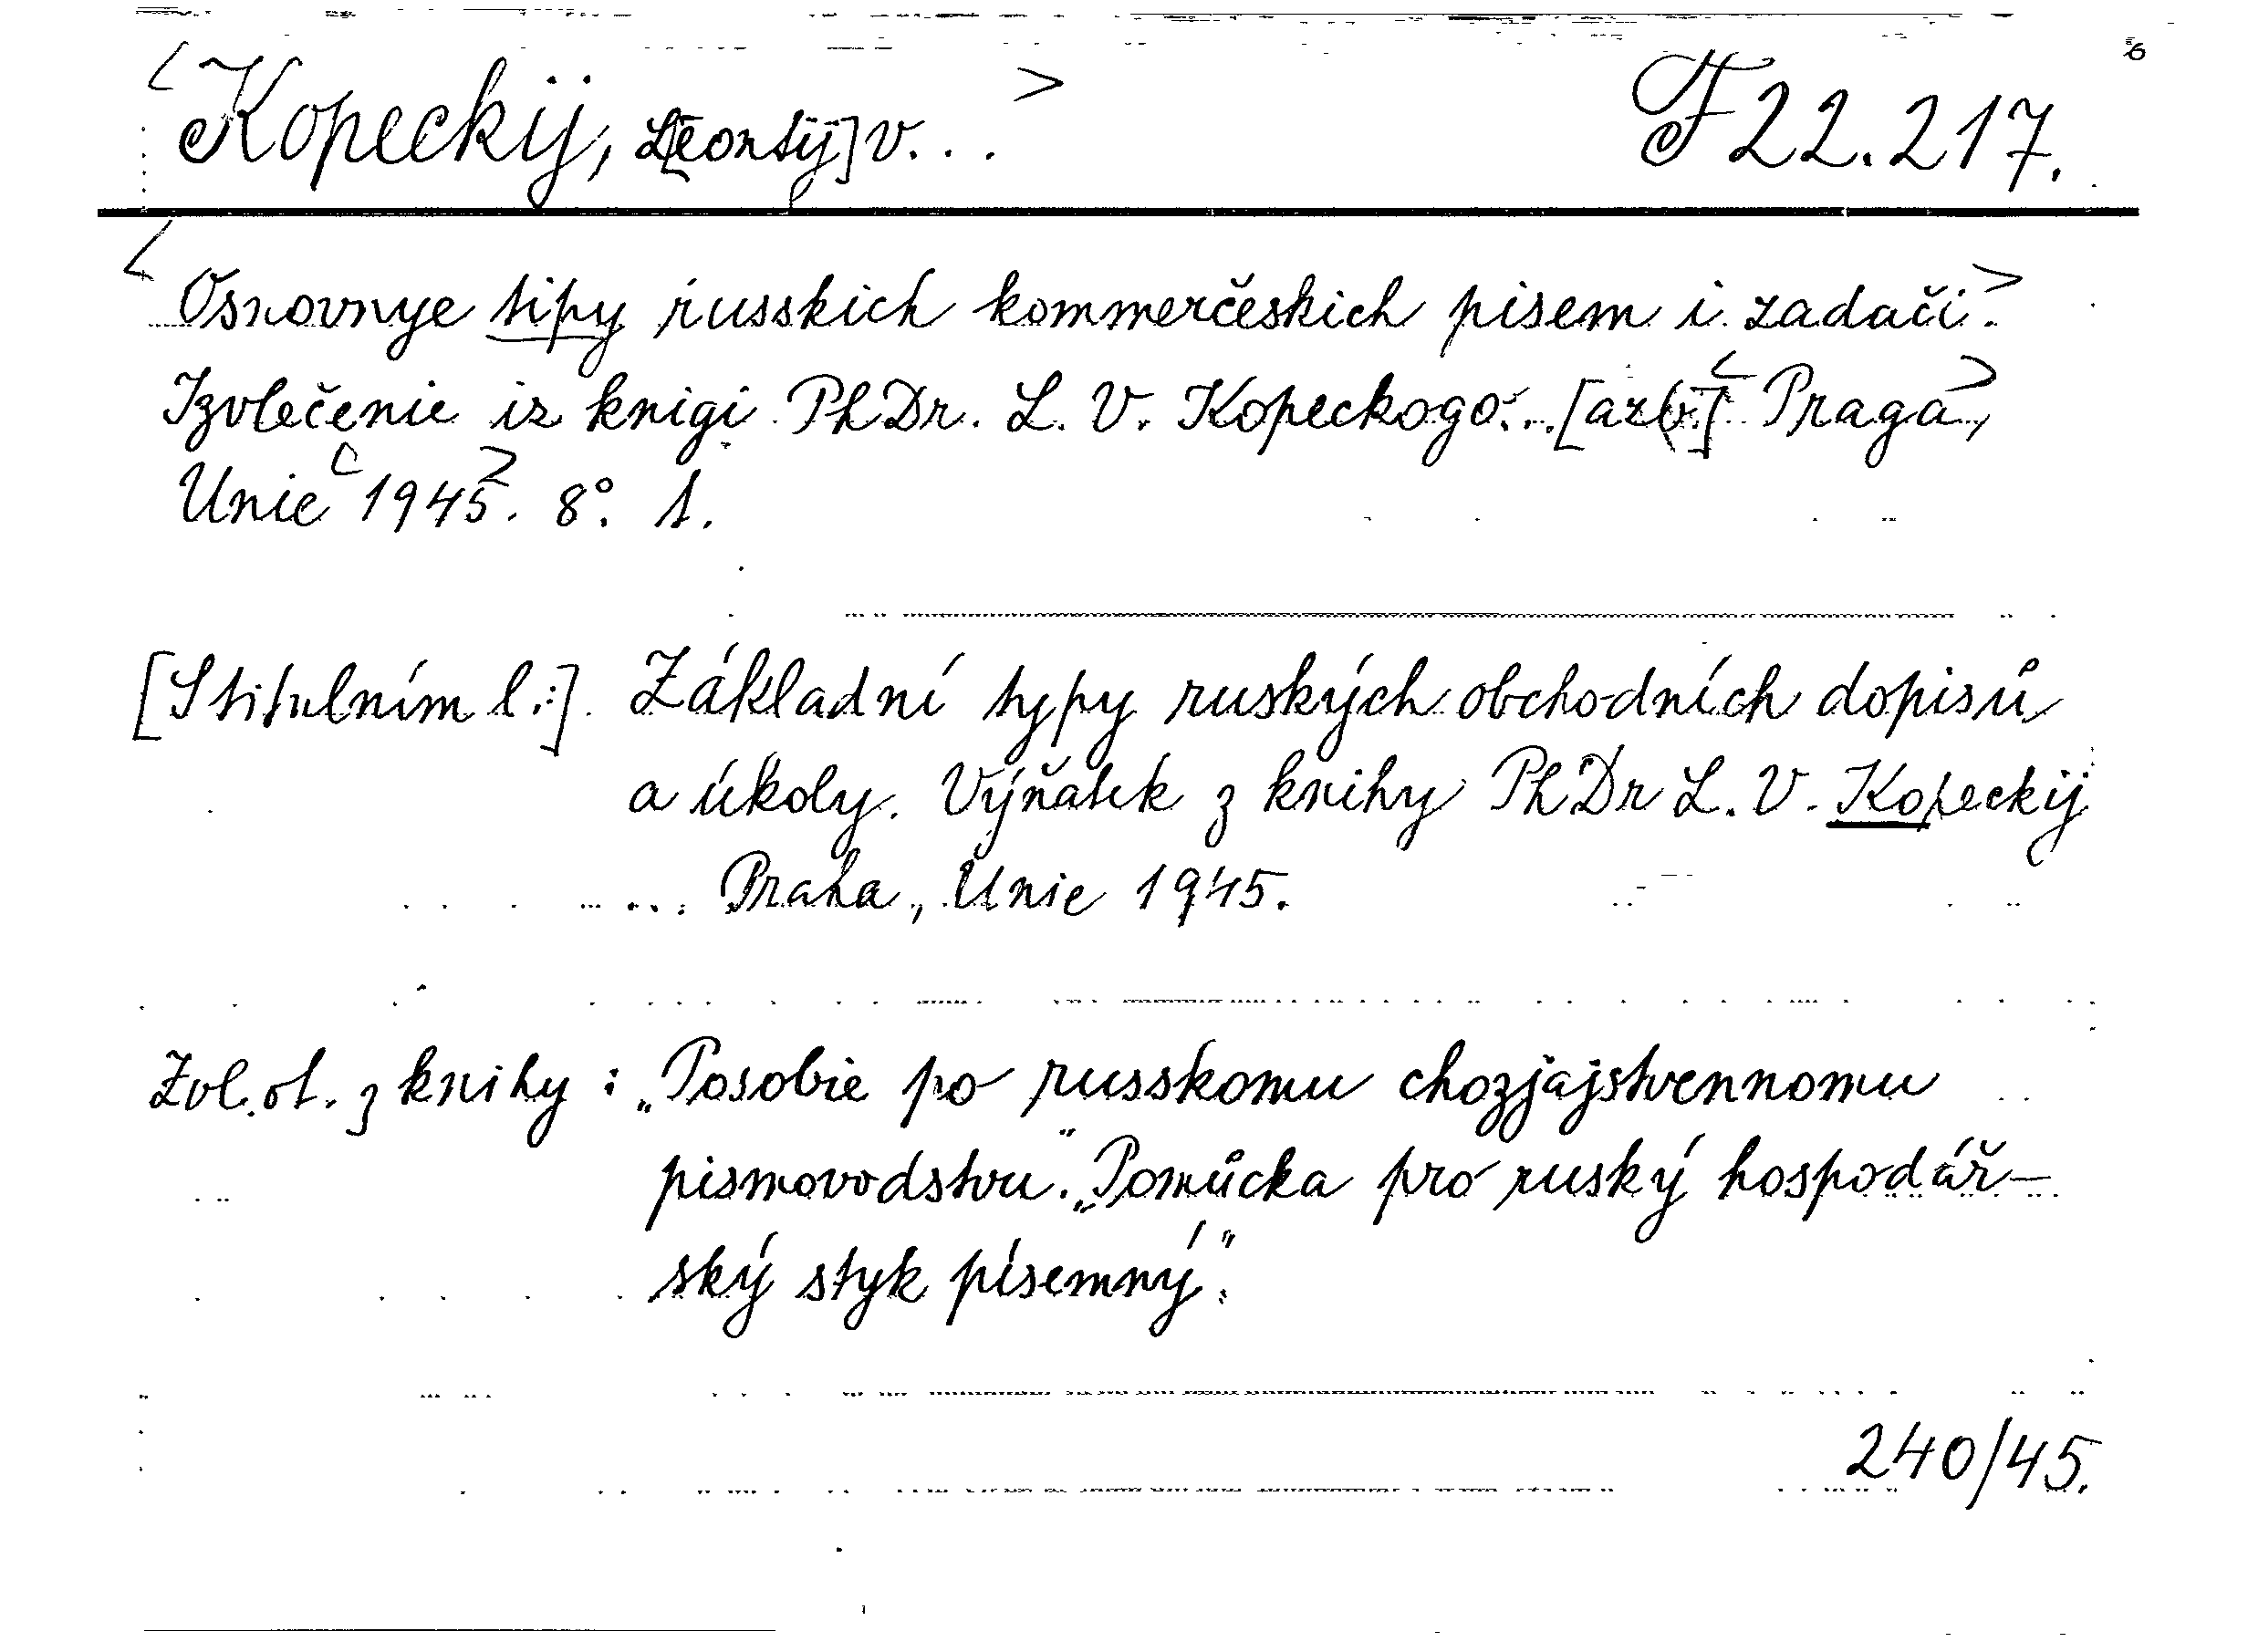 <Kopeckij, L[eontij] V...> F 22.217.
<Osnovnye tipy russkich kommerčeskich pisem i zadači.>
Izvlečenie iz knigi PhDr. L. V. Kopeckogo... [azb.] <Praga>,
Unie <1945>. 8°. 1.
[S titulním l.:] Základní typy ruských obchodních dopisů
a úkoly. Výňatek z knihy PhDr L. V. Kopeckij
... Praha, Unie 1945.
Zvl. ot. z knihy: „Posobie po russkomu chozjajstvennomu
pismovodstvu." „Pomůcka pro ruský hospodář-
ský styk písemný".
240/45.